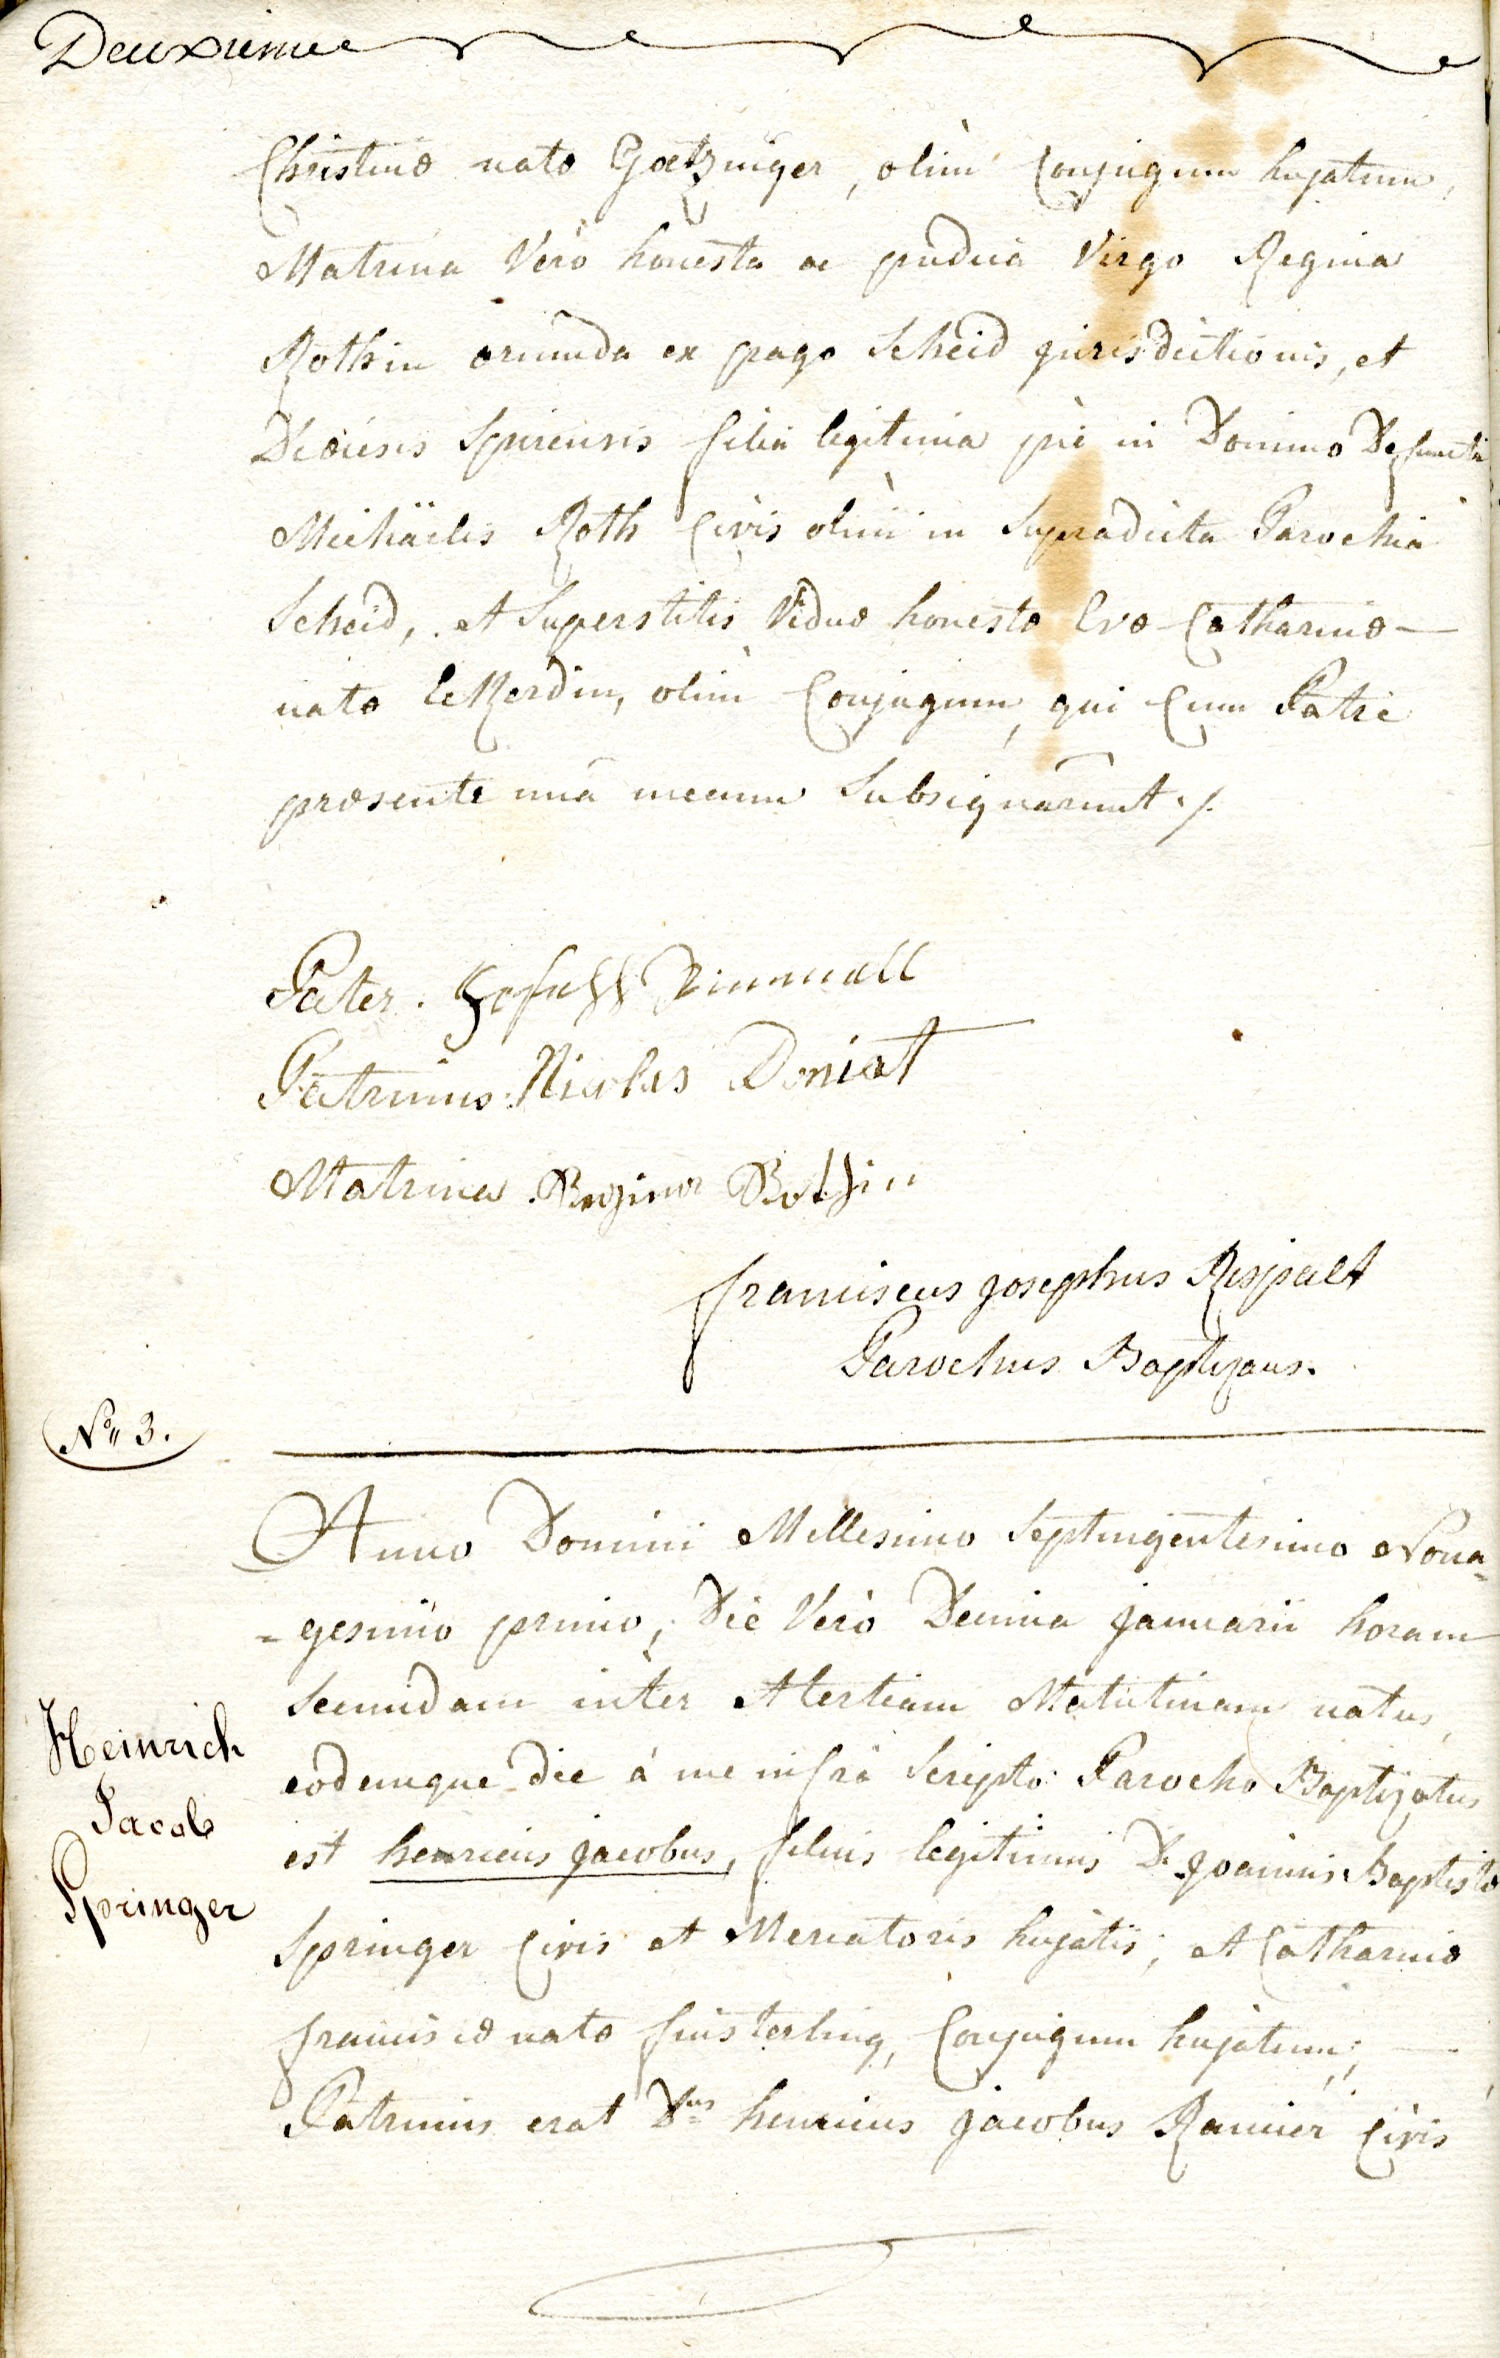 Deuxieme
Christinæ natæ Goetzinger, olim Conjugum hujatum,
Matrina Vero honesta ac pudica Virgo Regina
Rothin oriunda ex pago Scheid jurisdictionis, et
Diœcesis Spirensis filia legitima piè in Domino Defuncti
Michäelis Roth Civis olim in Supradicta Parochia
Scheid, et Superstitis Viduæ honestæ Evæ Catharinæ —
natæ Ekerdin, olim Conjugum, qui Cum Patre
præsente unà mecum Subsignârunt ./.
Pater. Joseph
Patrinus. Nicolas Doniat
Matrina. Regina Rothin
franciscus josephus Rispalt
Parochus Baptizans.
N° 3.
Anno Domini Millesimo Septingentesimo Nona-
-gesimo primo, Die Verò Decima januarii horam
Secundam inter et tertiam Matutinam natus,
eodemque die à me infrà Scripto Parocho Baptizatus
est henricus jacobus, filius legitimus D. joannis Baptistæ
Springer Civis et Mercatoris hujatis, et Catharinæ
franciscæ natæ finsterling, Conjugum hujatum; —
Patrinus erat Dnus henricus jacobus Rannier Civis
Heinrich
Jacob
Springer